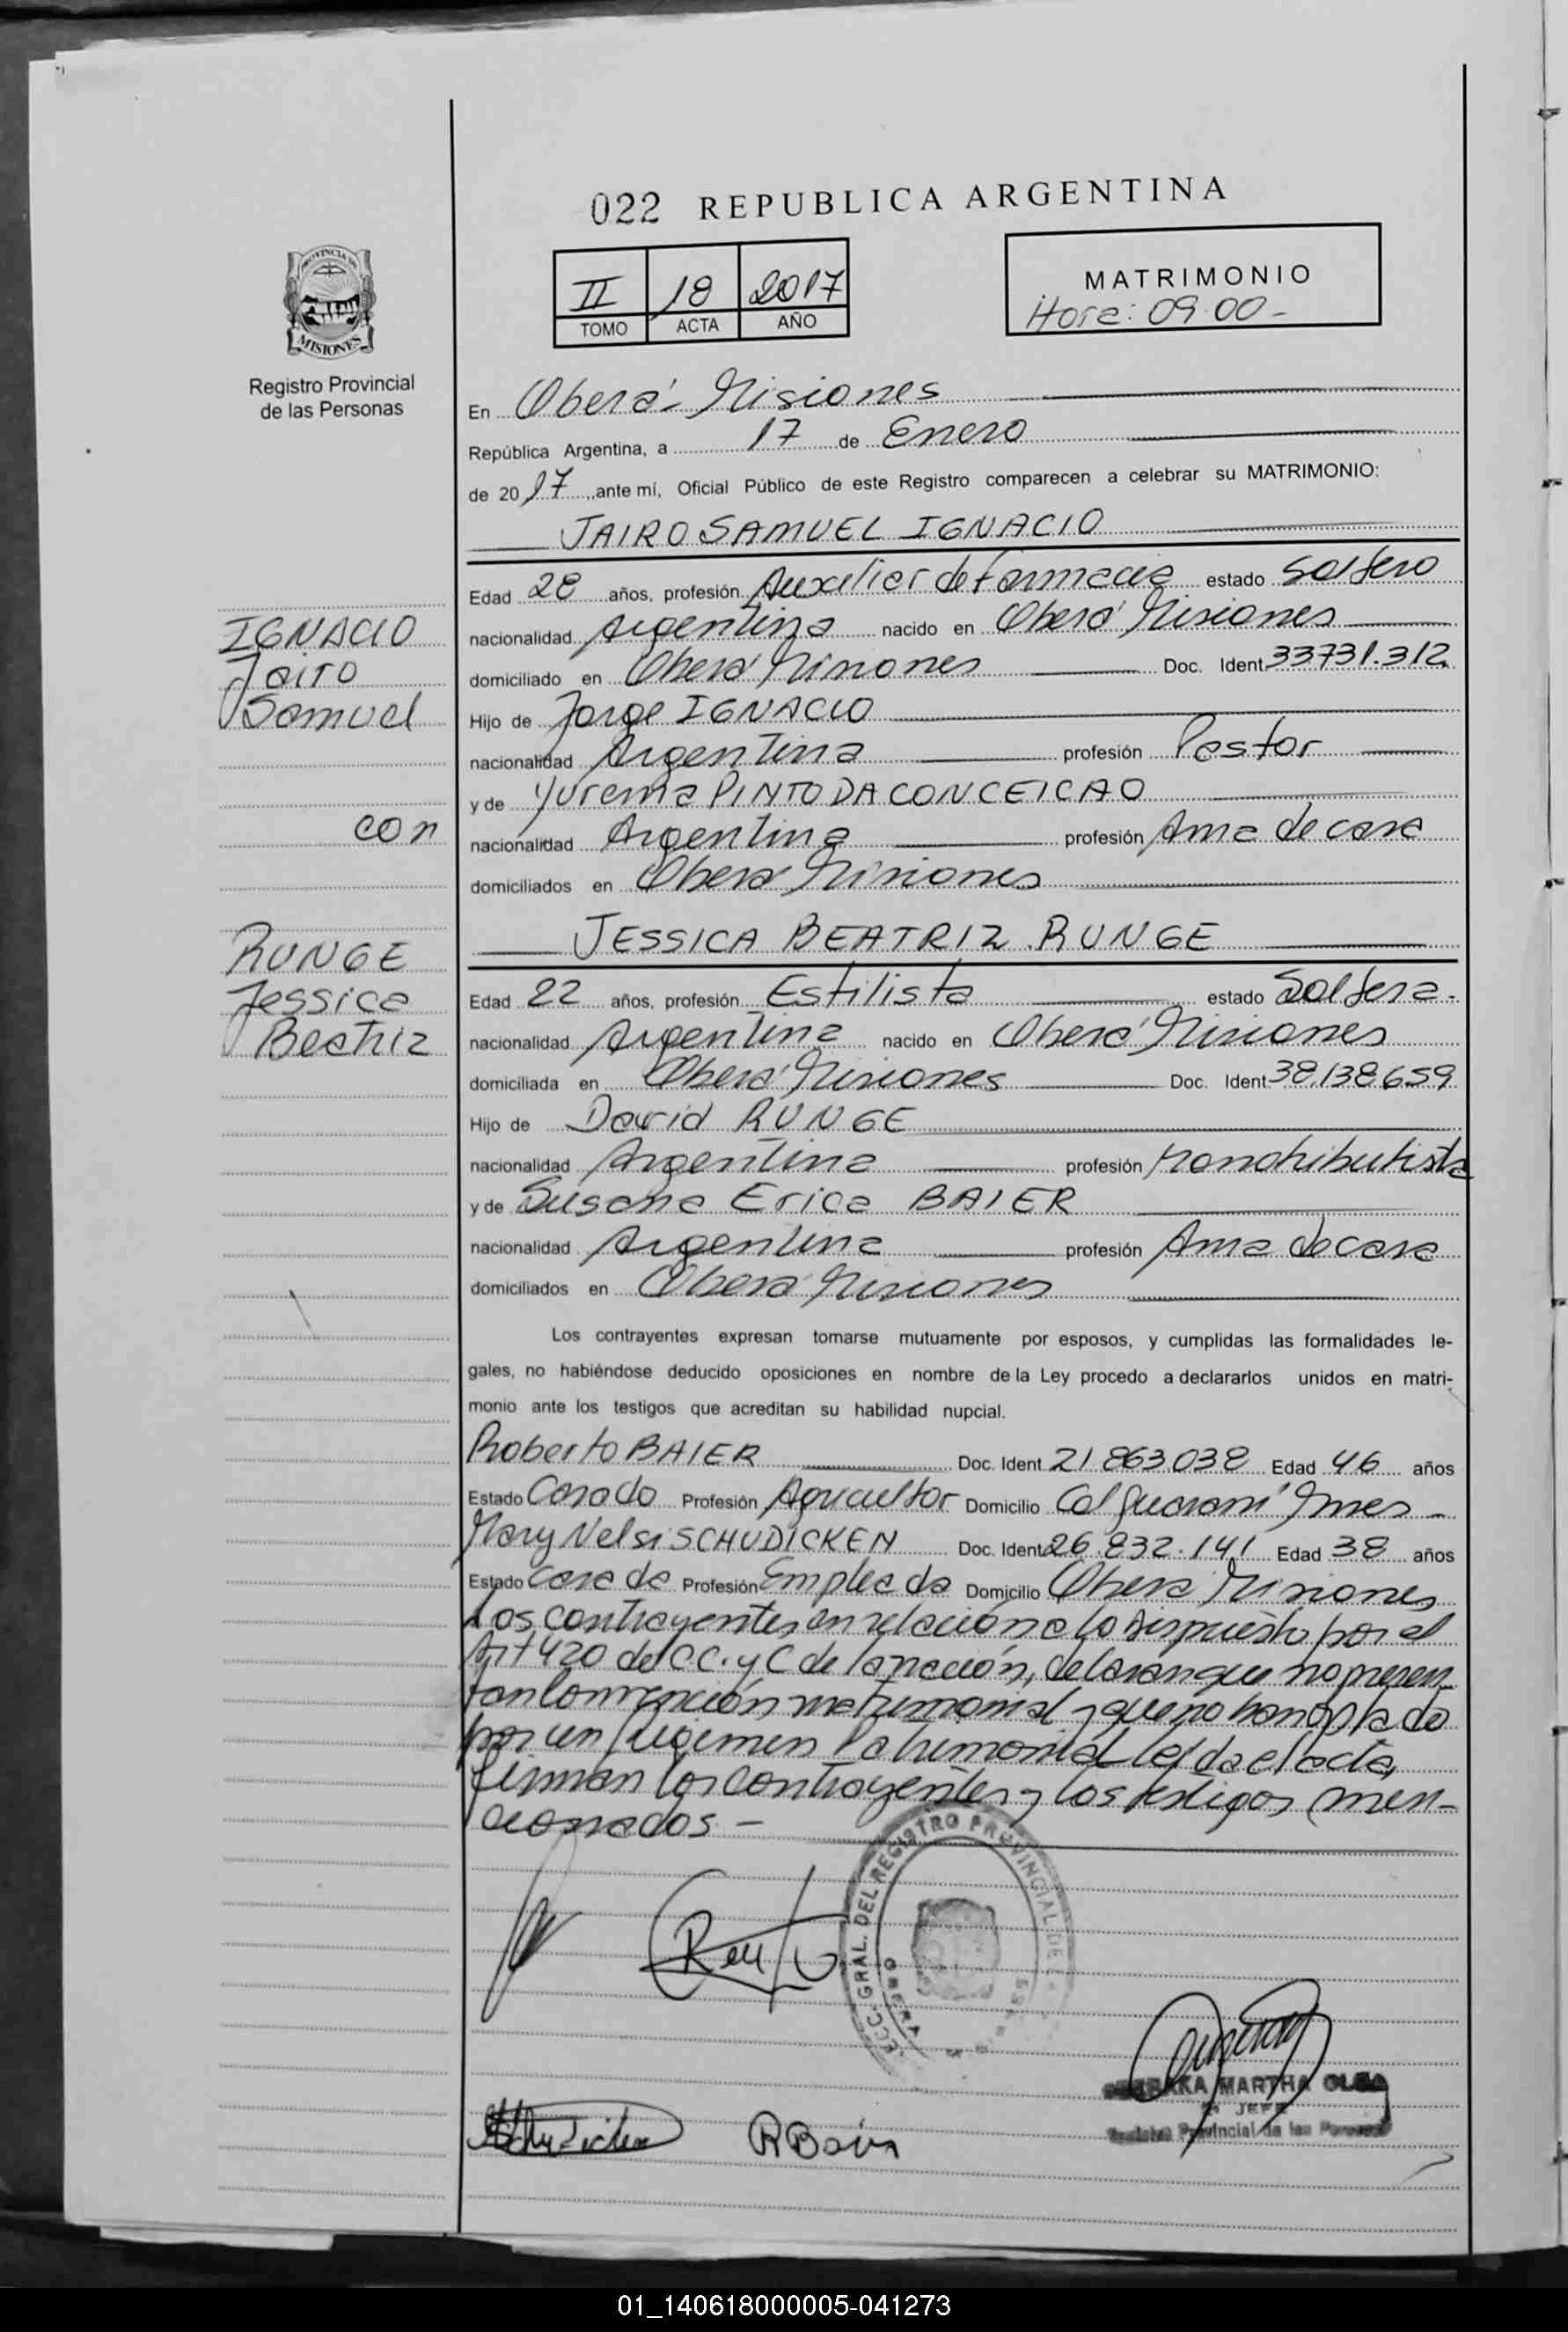 022 REPUBLICA ARGENTINA
II 18 2017
TOMO ACTA AÑO
MATRIMONIO
Hora: 09.00-
PROVINCIA DE
MISIONES
Registro Provincial
de las Personas
En Oberá- Misiones
República Argentina, a 17 de Enero
de 2017, ante mí, Oficial Público de este Registro comparecen a celebrar su MATRIMONIO:
JAIRO SAMUEL IGNACIO
Edad 28 años, profesión Auxiliar de Farmacia estado Soltero
IGNACIO
Jairo
Samuel
con
RUNGE
Jessica
Beatriz
nacionalidad Argentina nacido en Oberá Misiones
domiciliado en Oberá Misiones Doc. Ident 33731.312
Hijo de Jorge IGNACIO
nacionalidad Argentina profesión Pastor
y de Yurema PINTO DA CONCEICAO
nacionalidad Argentina profesión Ama de casa
domiciliados en Oberá Misiones
JESSICA BEATRIZ RUNGE
Edad 22 años, profesión Estilista estado Soltera-
nacionalidad Argentina nacido en Oberá Misiones
domiciliada en Oberá Misiones Doc. Ident 38.138.659
Hijo de David RUNGE
nacionalidad Argentina profesión Monotributista
y de Susana Erica BAIER
nacionalidad Argentina profesión Ama de casa
domiciliados en Oberá Misiones
Los contrayentes expresan tomarse mutuamente por esposos, y cumplidas las formalidades le-
gales, no habiéndose deducido oposiciones en nombre de la Ley procedo a declararlos unidos en matri-
monio ante los testigos que acreditan su habilidad nupcial.
Roberto BAIER Doc. Ident 21.863.038 Edad 46 años
Estado Casado Profesión Agricultor Domicilio Col Guaraní Mnes-
Mary Nelsi SCHUDICKEN Doc. Ident 26.832.141 Edad 38 años
Estado Casada Profesión Empleada Domicilio Oberá Misiones
Los contrayentes en relación a lo dispuesto por el
Art 420 del CC. y C de la nación, delaran que no presen-
tan convención matrimonial y que no han optado
por un regimen Patrimonial leida el acta,
firman los contrayentes y los testigos men-
cionados.-
GRAL. DEL REGISTRO PROVINCIAL DE
OBERA
MARTHA OLGA
JEFE
Provincial de las
RBaier
01_140618000005-041273